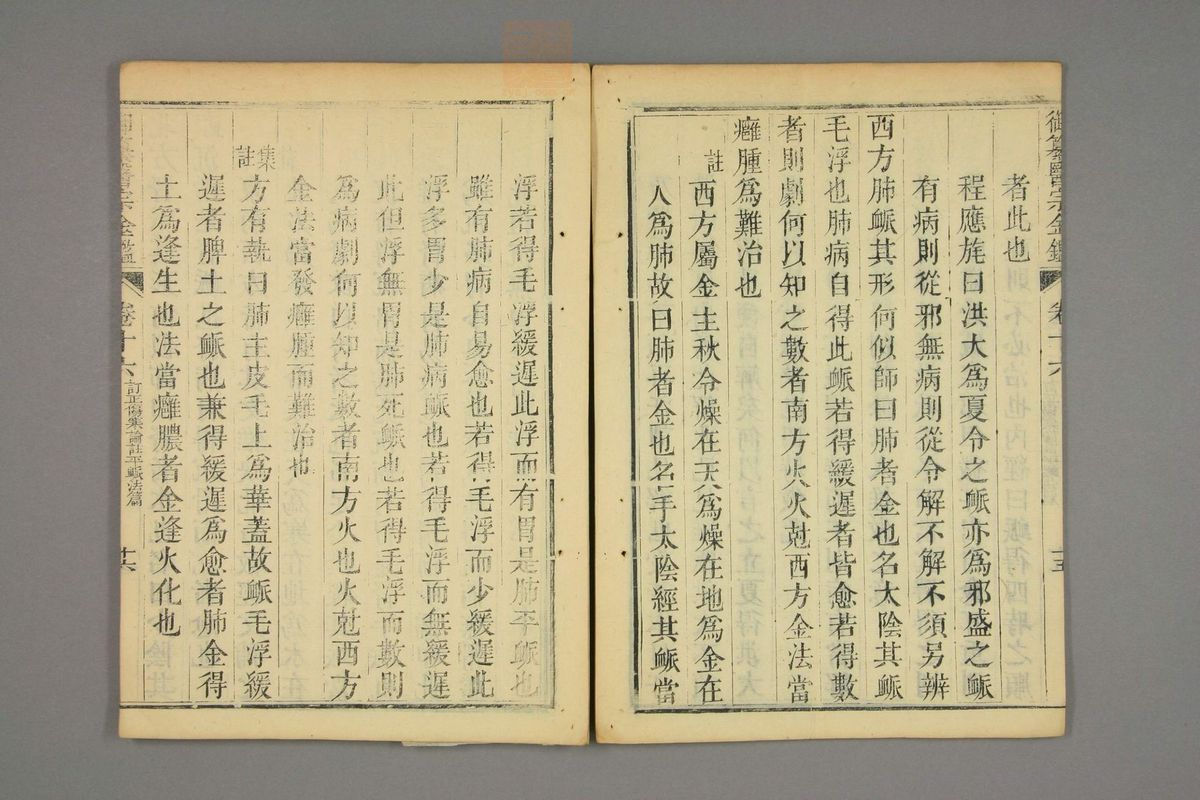 御纂醫宗金鑑 卷十六 十五
者此也
程應旄曰洪大爲夏令之脈亦爲邪盛之脈
有病則從邪無病則從令解不解不須另辨
西方肺脈其形何似師曰肺者金也名太陰其脈
毛浮也肺病自得此脈若得緩遲者皆愈若得數
者則劇何以知之數者南方火火尅西方金法當
癰腫爲難治也
註西方屬金主秋令燥在天爲燥在地爲金在
人爲肺故曰肺者金也名手太陰經其脈當
浮若得毛浮緩遲此浮而有胃是肺平脈也
雖有肺病自易愈也若得毛浮而少緩遲此
浮多胃少是肺病脈也若得毛浮而無緩遲
此但浮無胃是肺死脈也若得毛浮而數則
爲病劇何以知之數者南方火也火尅西方
金法當發癰腫而難治也
集註方有執曰肺主皮毛上爲華蓋故脈毛浮緩
遲者脾土之脈也兼得緩遲爲愈者肺金得
土爲逢生也法當癰膿者金逢火化也
卷十六 訂正傷寒論註平脈法篇 十六